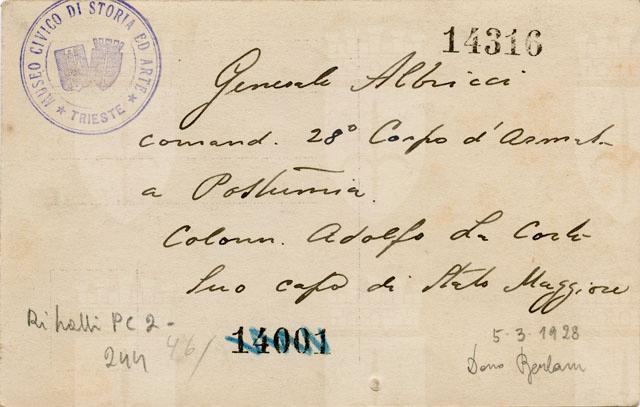 MUSEO CIVICO DI STORIA ED ARTE
★ TRIESTE ★
14316
Generale Albricci
comand. 28° Corpo d'Armat
a Postumia.
Colonn. Adolfo La Corte
Suo capo di Stato Maggiore
PC 2-
244
46/
14001
5-3-1928
Dono